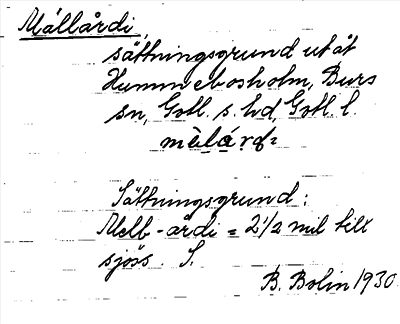 Mállårdi,
sättningsgrund utåt
Hummelbosholm, Burs
sn, Gotl. s. hd, Gotl. l.
Sättningsgrund:
Melb-årdi = 2 1/2 mil till
sjöss. S.
B. Bolin 1930